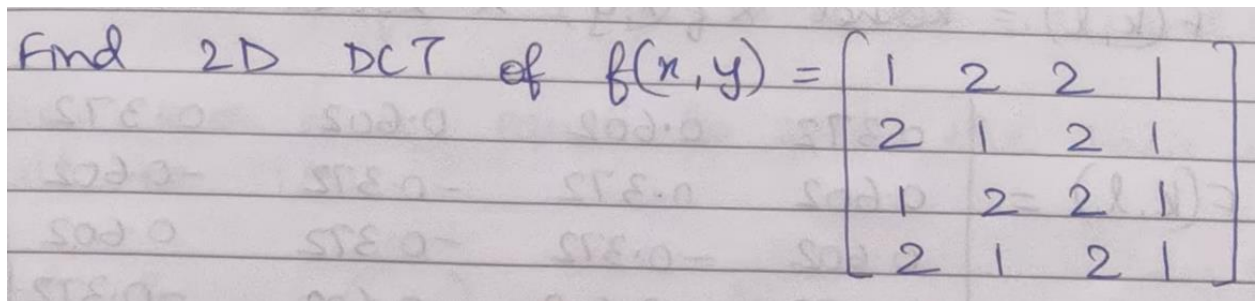 Find 2D DCT of f(x,y) = [ 1 2 2 1
2 1 2 1
1 2 2 1
2 1 2 1 ]